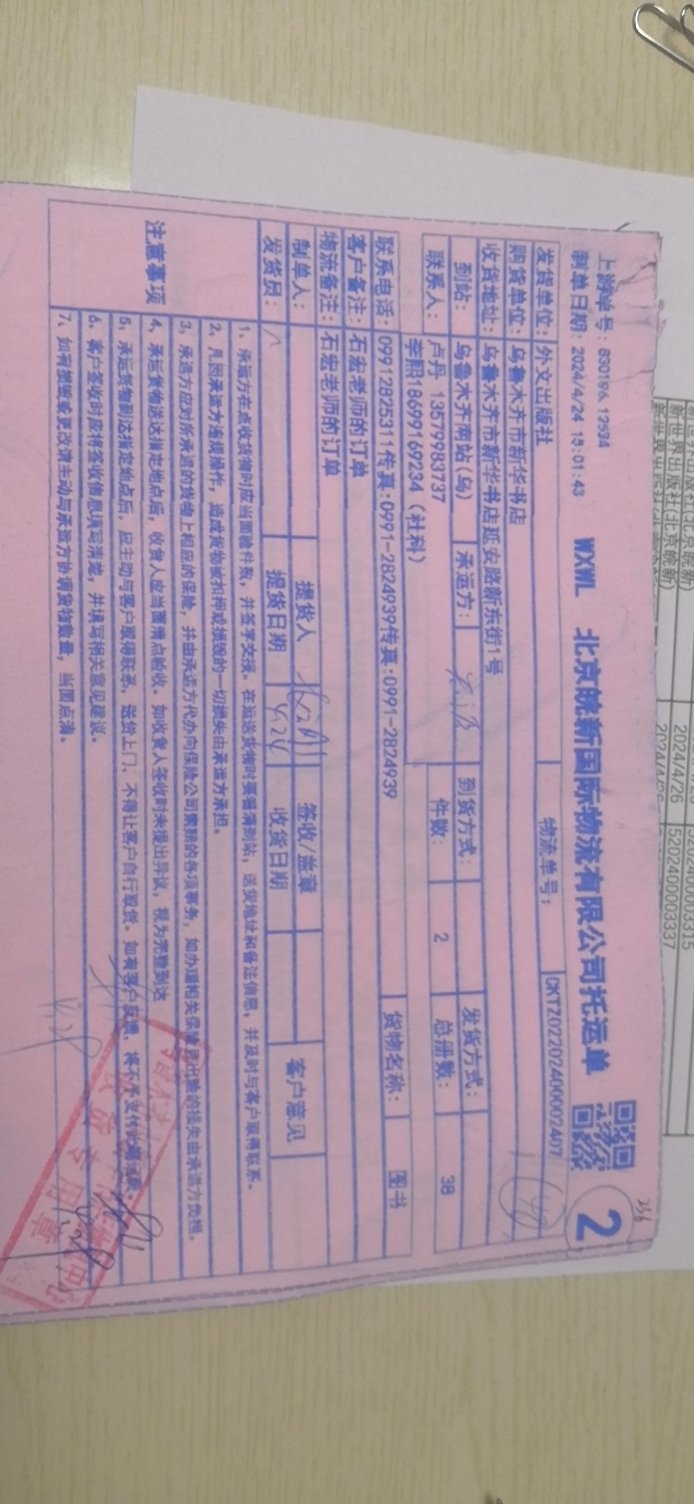 上游单号：890196 12594
236
制单日期：2024/4/24 15:01:43 WXWL 北京皖新国际物流有限公司托运单 2
发货单位：外文出版社 物流单号：CKTZ0220240002407
购货单位：乌鲁木齐市新华书店
收货地址：乌鲁木齐市新华书店延安路新东街1号
到站：乌鲁木齐南站(乌) 承运方： 到货方式： 发货方式：
联系人：卢丹 13579983737 件数：2 总册数：38
李熙18699169234（社科）
联系电话：09912825311传真:0991-2824939传真:0991-2824939 货物名称：图书
客户备注：石宏老师的订单
物流备注：石宏老师的订单
制单人： 提货人 签收/盖章 客户意见
发货员： 提货日期 4.24 收货日期
注意事项
1、承运方在点收货物时应当面验件数，并签字交接。在运送货物时要看清到站，送货地址和备注信息，并及时与客户取得联系。
2、凡因承运方违规操作，造成货物被扣押或损毁的一切损失由承运方承担。
3、承运方应对所承运的货物上相应的保险，并由承运方代办向保险公司索赔的各项事务，如办理相关保险的损失由承运方负担。
4、承运货物送达指定地点后，收货人应当面清点验收。如收货人签收时未提出异议，视为完整到达
5、承运货物到达指定地点后，应主动与客户取得联系，送货上门，不得让客户自行取货。如有客户反馈，将不予支付此单运费。
6、客户签收时应将签收信息填写清楚，并填写相关意见建议。
7、如有损毁或更改请主动与承运方协调货物数量，当面点清。
4.28
专用章
新世界出版社(北京皖新) 2024/4/26 5202400003337